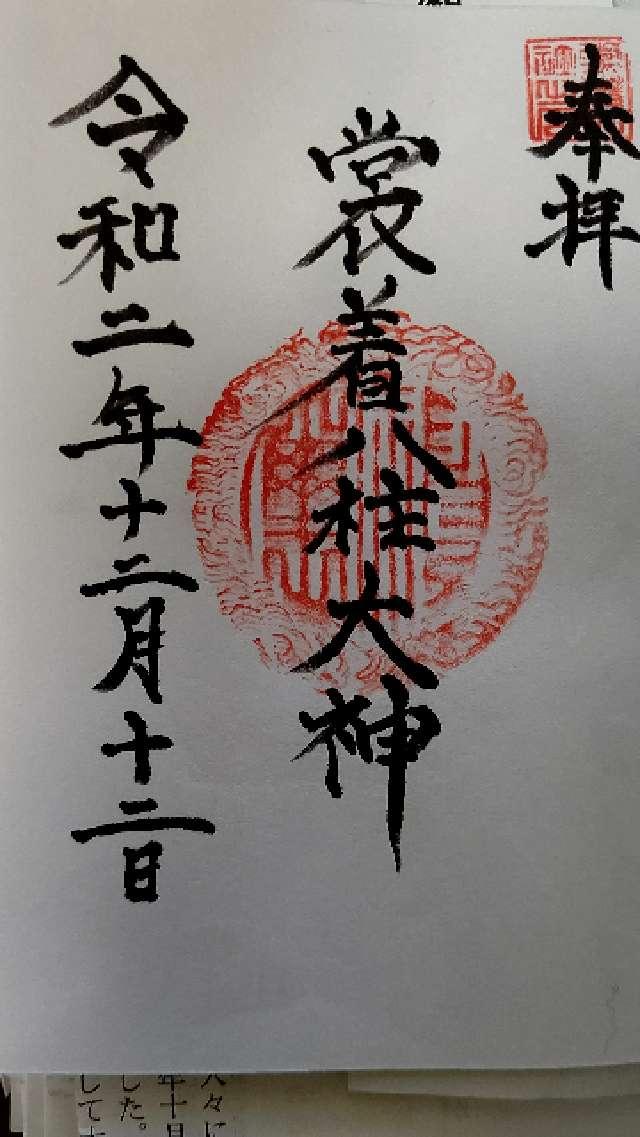 奉拝
裳着八柱大神
令和二年十二月十二日
人々に
年十月
した。
して